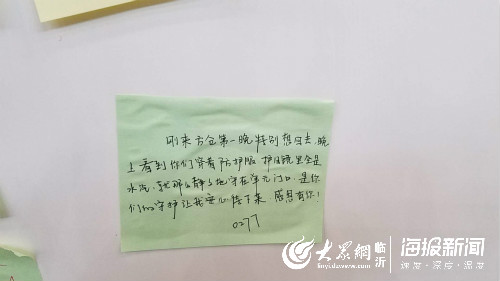 刚来方仓第一晚特别想回去,晚
上看到你们穿着防护服 护目镜里全是
水汽,就那么静静地守在单元门口,是你
们的守护让我安心住下来 感恩有你!
0277
大众网 临沂
linyi.dzwww.com
海报新闻
速度·深度·温度